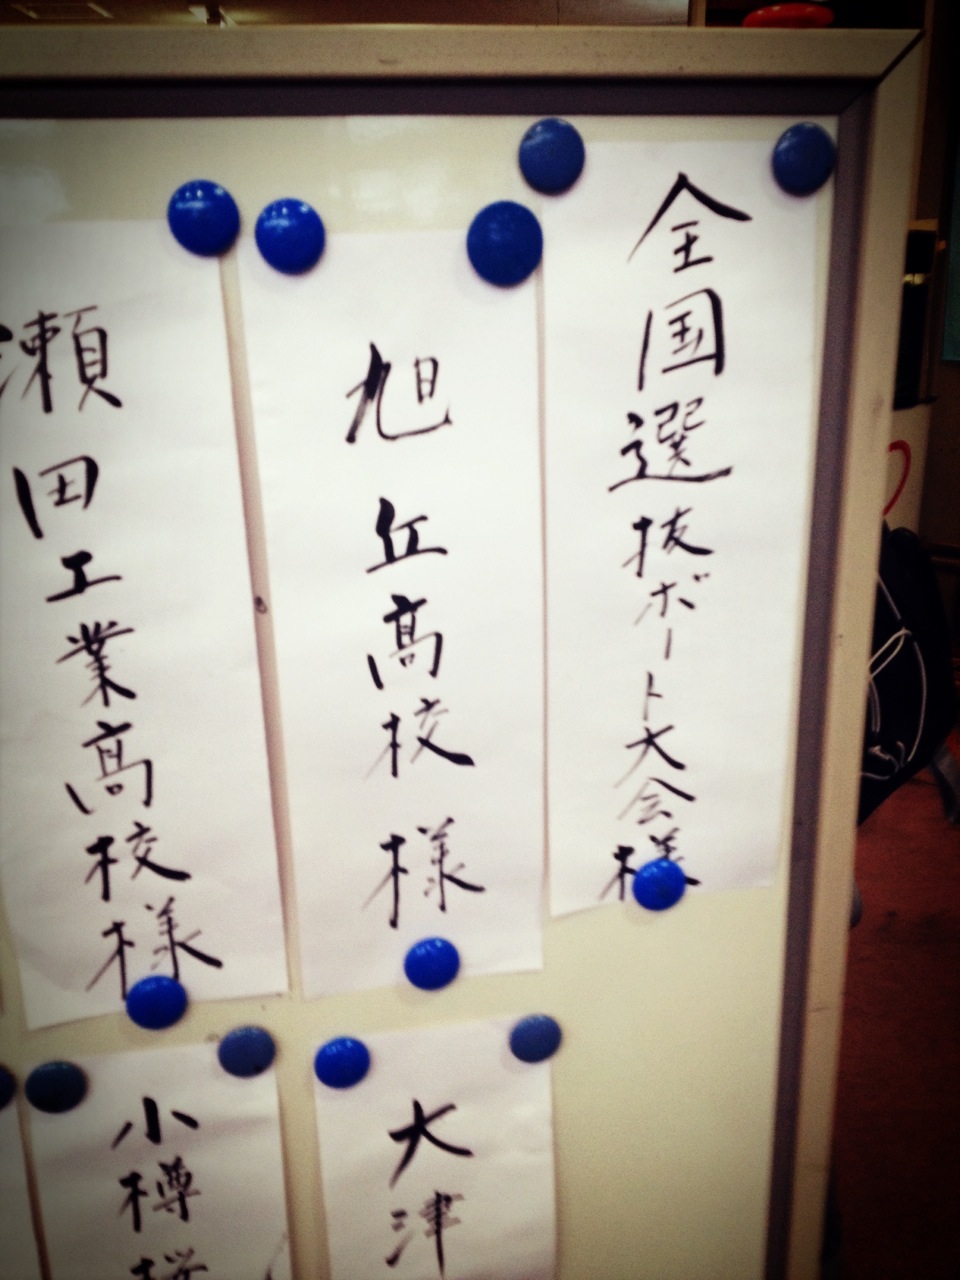 全国選抜ボート大会様
旭丘高校様
瀬田工業高校様
大津
小樽桜